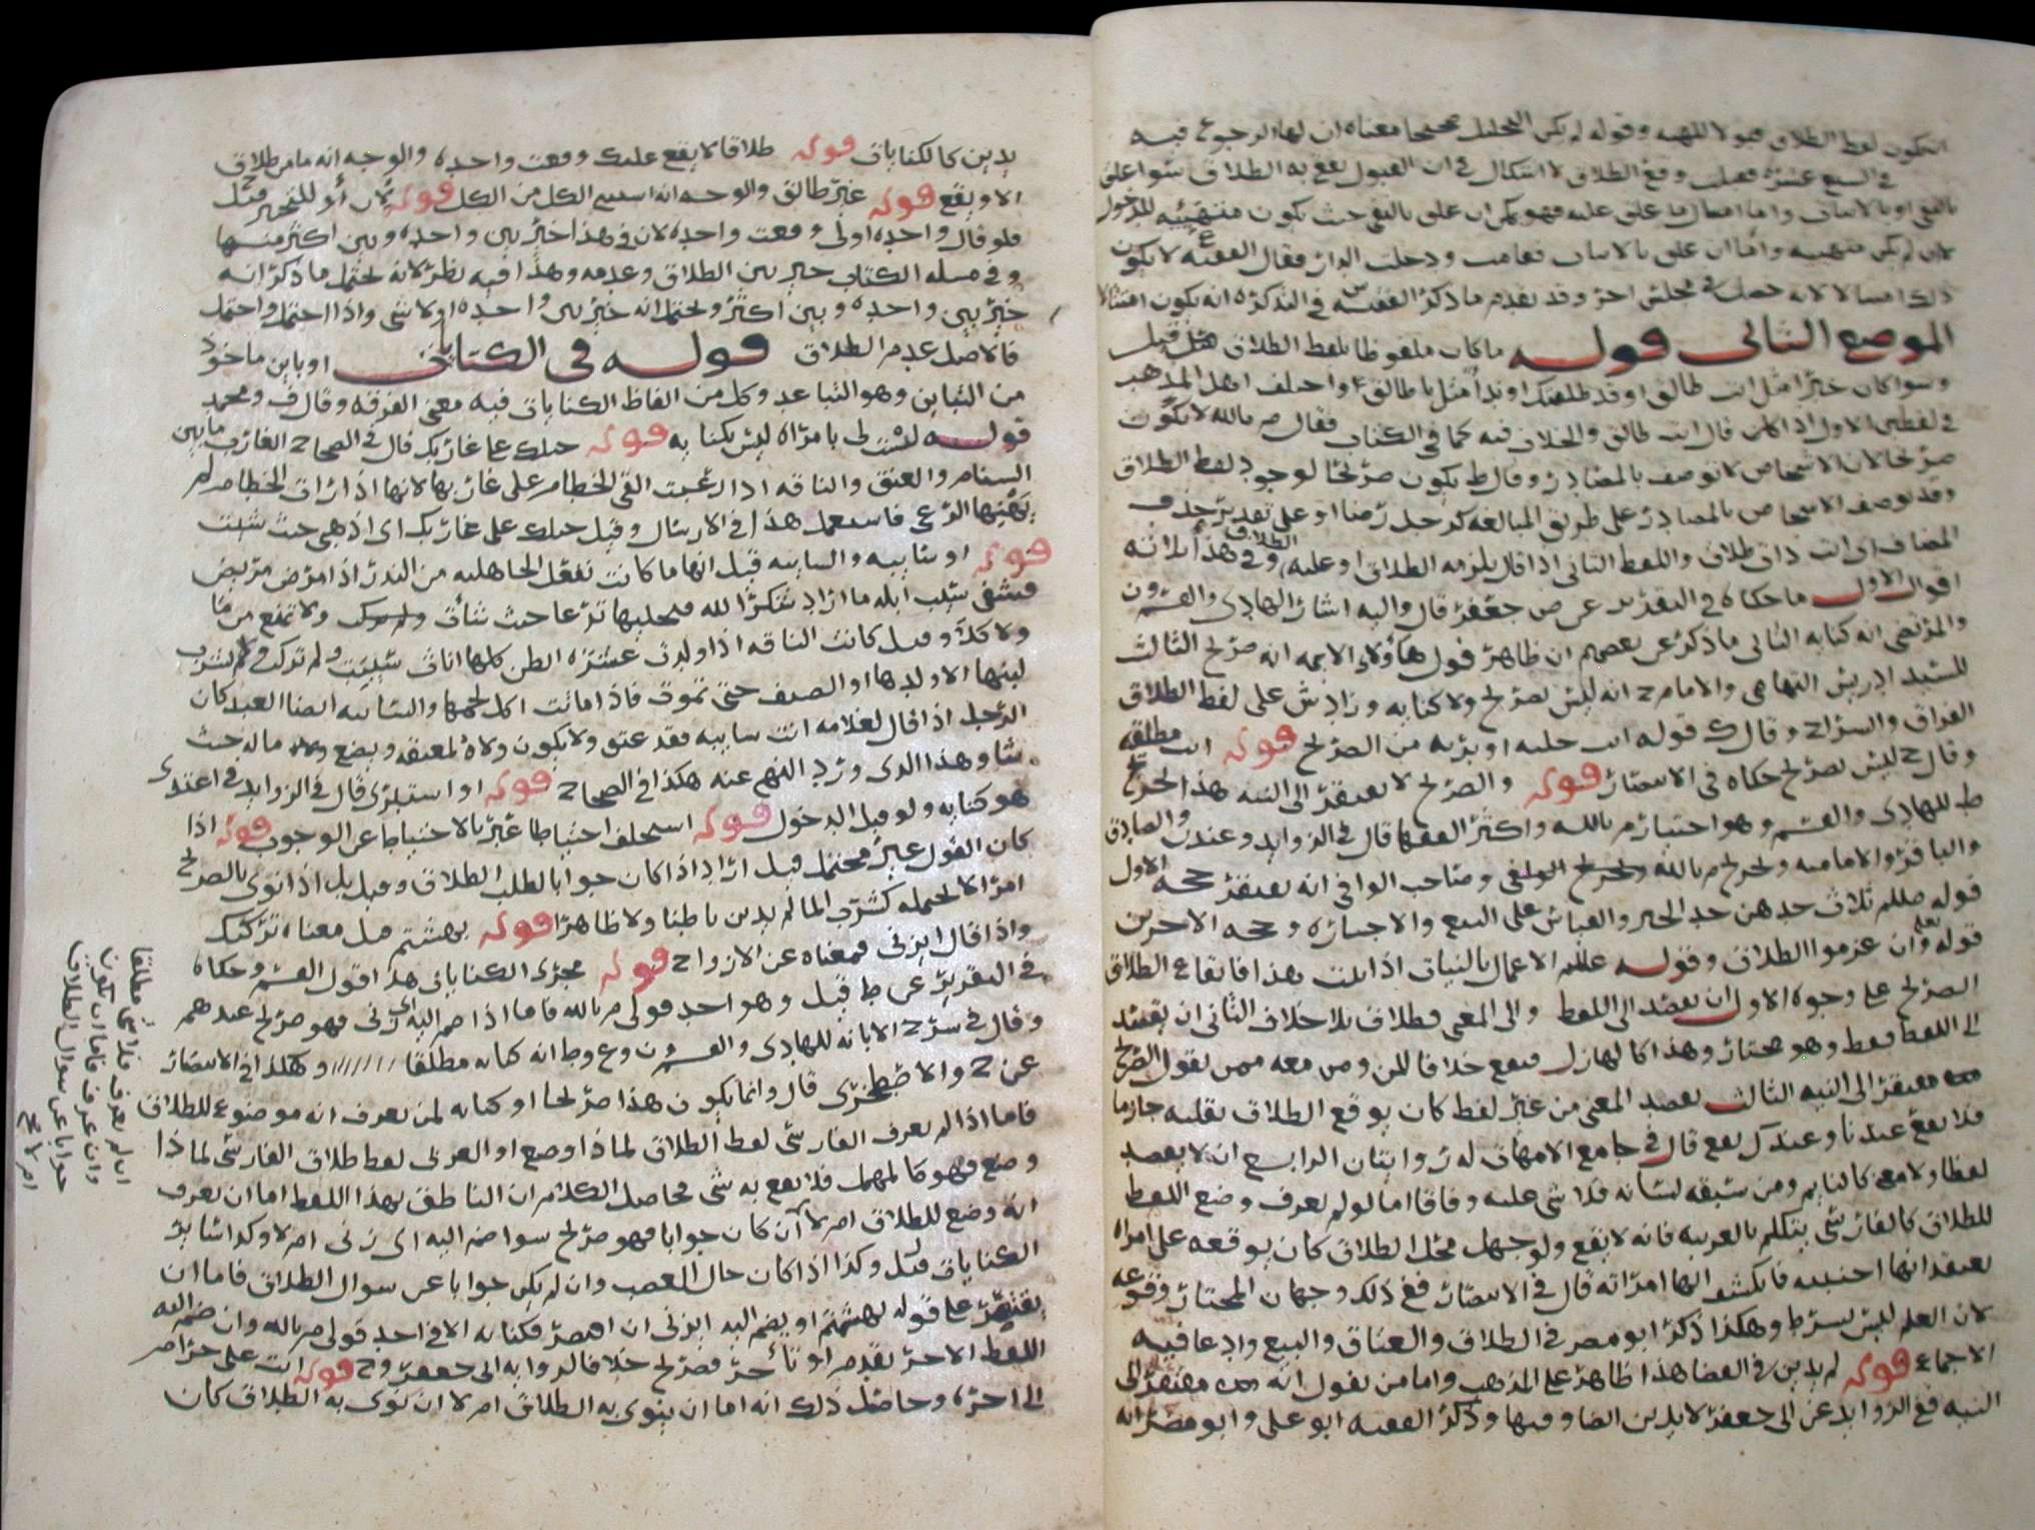 لكون لفظ الطلاق وقوله لم يكن التحليل صحيحا معناه ان لها الرجوع فيه
في السبع عشره وقع الطلاق لا اشكال في ان القبول يقع به الطلاق سوا علق
بالنفي او بالاثبات واما على بالنفي حيث تكون منتهيئه للدخول
لان لم يكن واما ان علق بالاثبات فقامت ودخلت الدار فقال الفقيه ع لا يكون
ذلك لانه في مجلس اخر وقد تقدم ما ذكره الفقيه س في التذكره انه يكون امتثالا
الموضع الثاني قوله ما كان ملفوظا بلفظ الطلاق قيل
وسوا كان خبرا مثل انت طالق او قد طلقتك او ندا مثل يا طالق واختلف اهل المذهب
في لفظين الاول اذا قال انت طالق والخلاف فيه كما في الكتاب فقال م بالله لا يكون
صريحا لان الاشخاص لا توصف بالمصادر وقال ط يكون صريحا لوجود لفظ الطلاق
وقد توصف الاشخاص بالمصادر على طريق المبالغه كرجل رضا او على تقدير حذف
المضاف اي انت ذات طلاق واللفظ الثاني اذا قال يلزمه الطلاق او عليه الطلاق وفي هذا ثلاثه
اقوال الاول ما حكاه في التقرير عن ص جعفر قال واليه اشار الهادي والقسم ون
والمرتضى انه كنايه الثاني ما ذكره عن بعضهم ان ظاهر قول هاؤلاء الايمه انه صريح الثالث
للسيد ادريس التهامي والامام ح انه ليس بصريح ولا كنايه وزاد ش على لفظ الطلاق
الفراق والسراح وقال ك قوله انت خليه او بريه من الصريح قوله انت مطلقه
وقال ح ليس بصريح حكاه في الانتصار قوله والصريح لا يفتقر الى النيه هذا تخريج
ط للهادي والقسم وهو اختيار م بالله واكثر الفقها قال في الزوايد وعند ن والصادق
والباقر والاماميه وتخريج م بالله وصاحب الوافي انه يفتقر حجه الاول
قوله صللم ثلاث جدهن جد الخبر والقياس على البيع والاجاره وحجه الاخرين
قوله تعالى وان عزموا الطلاق وقوله عللم الاعمال بالنيات اذا ثبت هذا فايقاع الطلاق
الصريح على وجوه الاول ان يقصد الى اللفظ والى المعنى فطلاق بلا خلاف الثاني ان يقصد
الى اللفظ فقط وهو مختار وهذا كالهازل فيقع خلافا للن ومن معه ممن يقول الصريح
يفتقر الى النيه الثالث يقصد المعنى من غير لفظ كان يوقع الطلاق بقلبه جازما
فلا يقع عندنا وعند ك يقع قال في جامع الامهات له روايتان الرابع ان لا يقصد
لفظا ولا معنى كالنايم ومن سبقه لسانه فلا شي عليه وفاقا اما لو لم يعرف وضع اللفظ
للطلاق كالفارسي يتكلم بالعربيه فانه لا يقع ولو جهل محل الطلاق كان يوقعه على امراه
يعتقد انها اجنبيه فانكشف انها امراته قال في الانتصار ففي ذلك وجهان المختار وقوعه
لان العلم ليس بشرط وهكذا ذكر ابو مضر في الطلاق والعتاق والبيع وادعا فيه
الاجماع قوله لم يدين في القضا هذا ظاهر على المذهب واما من يقول انه مفتقر الى
النيه ففي الزوايد عن ابي جعفر لا يدين ايضا وفيها وذكر الفقيه ابو علي وابو مضر انه
يدين كالكنايات قوله طلاقا لا يقع عليك وقعت واحده والوجه انه ما من طلاق
الا ويقع قوله غير طالق والوجه انه استثنى الكل من الكل قوله لان أو للتخيير قيل ح
فلو قال واحده اولى وقعت واحده لان في هذا خير بين واحده وبين اكثر منها
وفي مسله الكتاب خير بين الطلاق وعدمه وهذا فيه نظر لانه يحتمل ما ذكر انه
خير بين واحده وبين اكثر ويحتمل انه خير بين واحده او لا شي واذا احتمل واحتمل
فالاصل عدم الطلاق قوله في الكنايات او باين ماخوذ
من التباين وهو التباعد وكل من الفاظ الكنايات فيه معنى الفرقه وقال ف ومحمد
قوله لست لي بامراه ليس بكنايه قوله حبلك على غاربك قال في الصحاح الغارب ما بين
السنام والعنق والناقه اذا رعيت القي الخطام على غاربها لانها اذا رات الخطام لم
يهنها الرعي فاستعمل هذا في الارسال وقيل حبلك على غاربك اي اذهبي حيث شئت
قوله او سايبه والسايبه قيل انها ما كانت تفعل الجاهليه من النذر اذا مرض مريض
فشفي سيب ابله ما اراد شكرا لله فيخليها ترعا حيث شات ولا تمنع من ما
ولا كلا وقيل كانت الناقه اذا ولدت عشره ابطن كلها اناث سيبت ولم تركب ولم يشرب
لبنها الا ولدها او الضيف حتى تموت فاذا ماتت اكل لحمها والسايبه ايضا العبد كان
الرجل اذا قال لغلامه انت سايبه فقد عتق ولا يكون ولاه لمعتقه ويضع ماله حيث
شا وهذا الذي ورد النهي عنه هكذا في الصحاح قوله او استبرى قال في الزوايد في اعتدي
هو كنايه ولو قبل الدخول قوله استحلف احتياطا عبر بالاحتياط عن الوجوب قوله اذا
كان القول غير محتمل قيل اراد اذا كان جوابا لطلب الطلاق وقيل بل اذا نوى بالصريح
امرا لا يحتمله كشرب الما لم يدين باطنا ولا ظاهرا قوله بهشتم قيل معناه تركتك
واذا قال ايزني فمعناه عن الازواج قوله مجرى الكنايات هذا قول القسم وحكاه
في التقرير عن ط قيل وهو احد قولي م بالله فاما اذا ضم اليه اي زني فهو صريح عندهم
وقال في شرح الابانه للهادي والقسم ون وع وط انه كنايه مطلقا وهكذا في الانتصار
عن ح والاصطخري قال وانما يكون هذا صريحا او كنايه لمن يعرف انه موضوع للطلاق
فاما اذا لم يعرف الفارسي لفظ الطلاق لما ذا وضع او العربي لفظ طلاق الفارسي لما ذا
وضع فهو كالمهمل فلا يقع به شي محاصل الكلام ان الناطق بهذا اللفظ اما ان يعرف
انه وضع للطلاق ام لا ان كان جوابا فهو صريح سوا ضم اليه اي زني ام لا وكذا سائر
الكنايات قيل وكذا اذا كان حال الغضب وان لم يكن جوابا عن سوال الطلاق فاما ان
يقتصر على قوله بهشتم او يضم اليه ايزني ان اقتصر فكنايه الا في احد قولي م بالله وان ضم اليه
اللفظ الاخر تقدم او تأخر فصريح خلافا لروايه ابي جعفر وح قوله انت علي حرام
الى اخره وحاصل ذلك انه اما ان ينوي به الطلاق ام لا ان نوى به الطلاق كان
ان لم يعرف فلا شي مطلقا
وان عرف فاما ان يكون
جوابا عن سوال الطلاق
ام لا صح